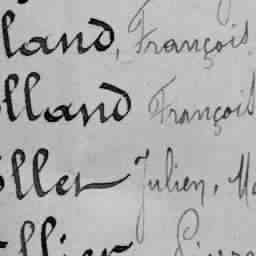 lland, François
lland François
llet Julien, Ma
llier Pierre